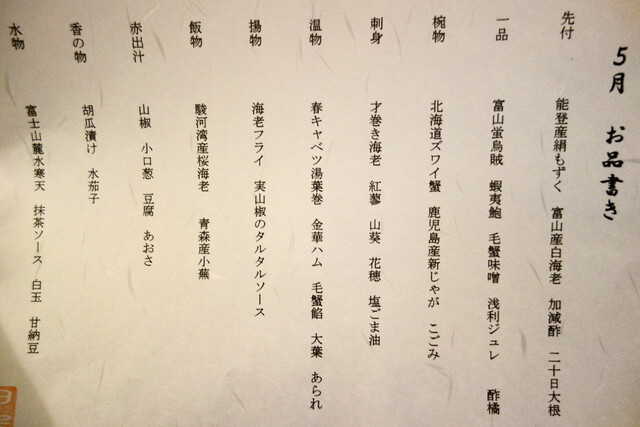 5月 お品書き
先付 能登産絹もずく 富山産白海老 加減酢 二十日大根
一品 富山蛍烏賊 蝦夷鮑 毛蟹味噌 浅利ジュレ 酢橘
椀物 北海道ズワイ蟹 鹿児島産新じゃが こごみ
刺身 才巻き海老 紅蓼 山葵 花穂 塩ごま油
温物 春キャベツ湯葉巻 金華ハム 毛蟹餡 大葉 あられ
揚物 海老フライ 実山椒のタルタルソース
飯物 駿河湾産桜海老 青森産小蕪
赤出汁 山椒 小口葱 豆腐 あおさ
香の物 胡瓜漬け 水茄子
水物 富士山麓水寒天 抹茶ソース 白玉 甘納豆